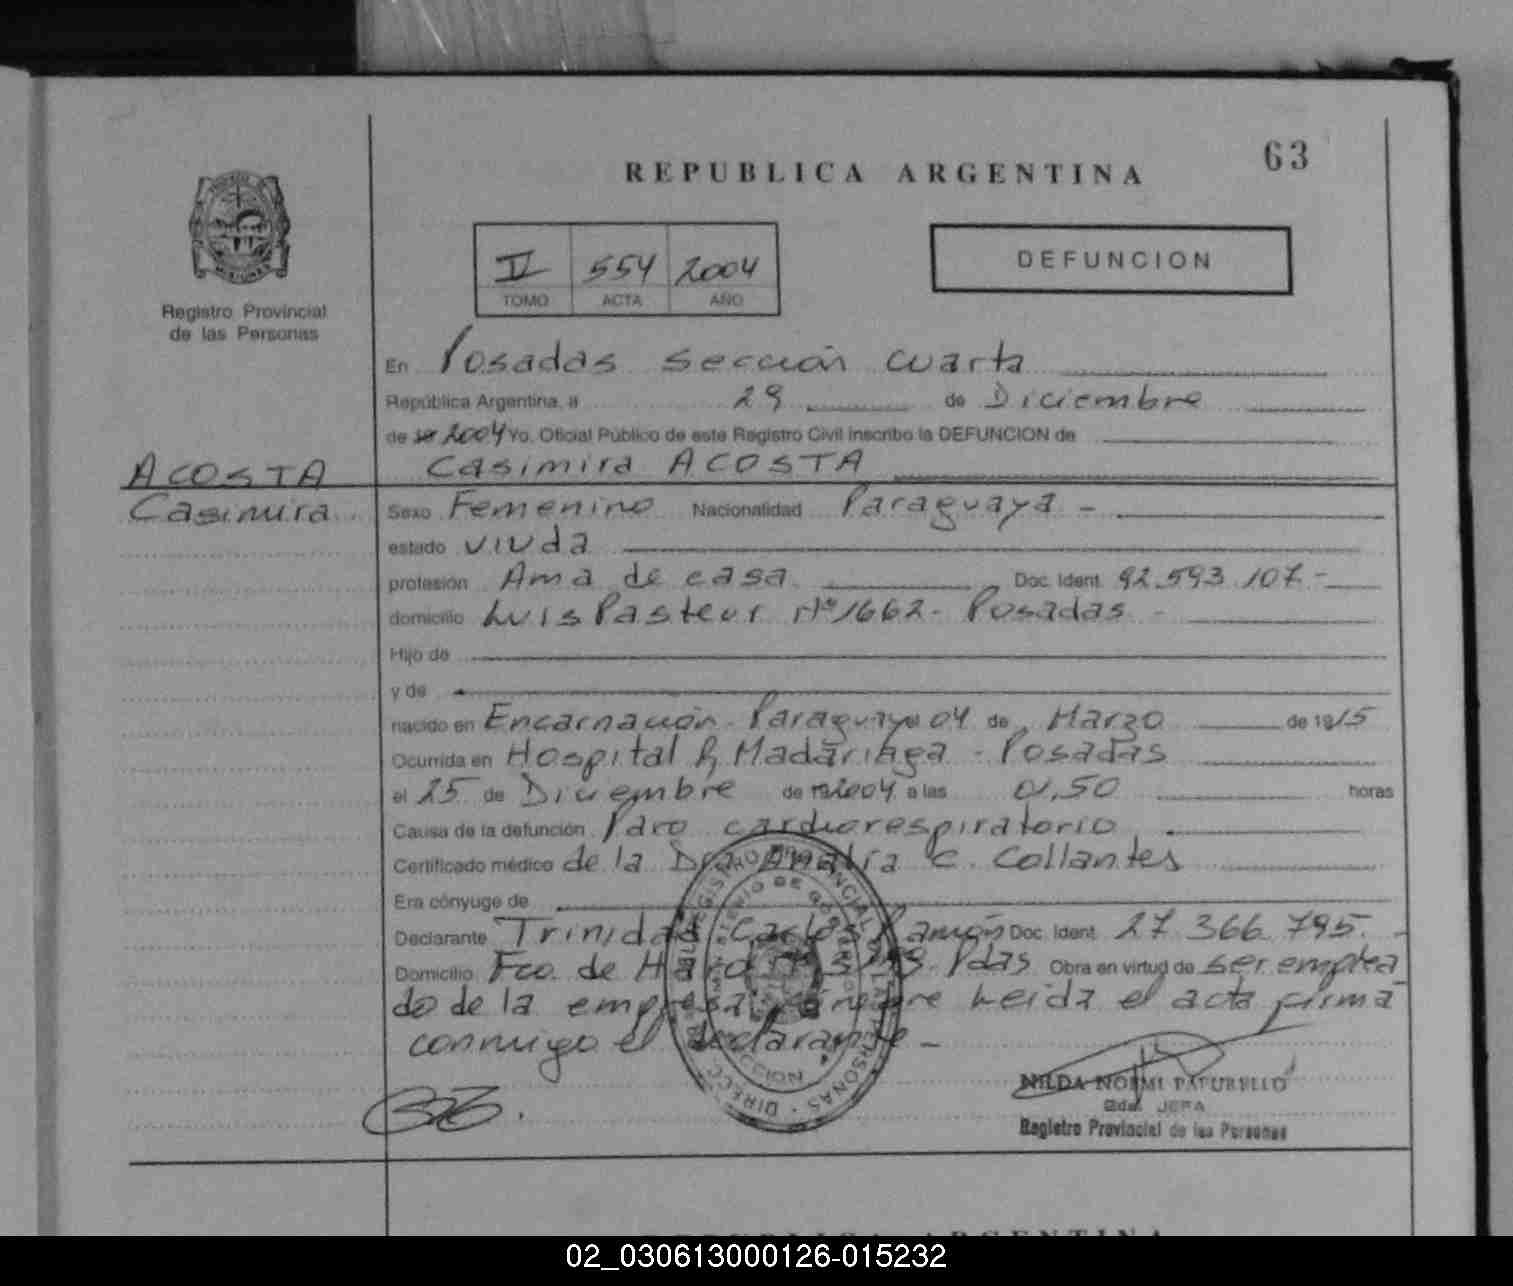 63
REPUBLICA ARGENTINA
II 554 2004
TOMO ACTA AÑO
DEFUNCION
Registro Provincial
de las Personas
En Posadas sección cuarta
República Argentina, a 29 de Diciembre
de 2004 Yo, Oficial Público de este Registro Civil inscribo la DEFUNCION de
ACOSTA Casimira ACOSTA
Casimira Sexo Femenino Nacionalidad Paraguaya -
estado viuda
profesión Ama de casa Doc. Ident. 92.593.107.-
domicilio Luis Pasteur Nº 1662 - Posadas -
Hijo de
y de
nacido en Encarnación - Paraguay el 04 de Marzo de 1915
Ocurrida en Hospital R. Madariaga - Posadas
el 25 de Diciembre de 2004 a las 01,50 horas
Causa de la defunción Paro cardiorespiratorio
Certificado médico de la Dra C. Collantes
Era cónyuge de
Declarante Trinidad Carlos Ramón Doc. Ident. 27.366.795.-
Domicilio Fco. de Haro Pdas Obra en virtud de ser emplea
do de la empresa fúnebre Leida el acta firma
conmigo el declarante -
NILDA NOEMI
JEFA
Registro Provincial de las Personas
REPUBLICA ARGENTINA
02_030613000126-015232